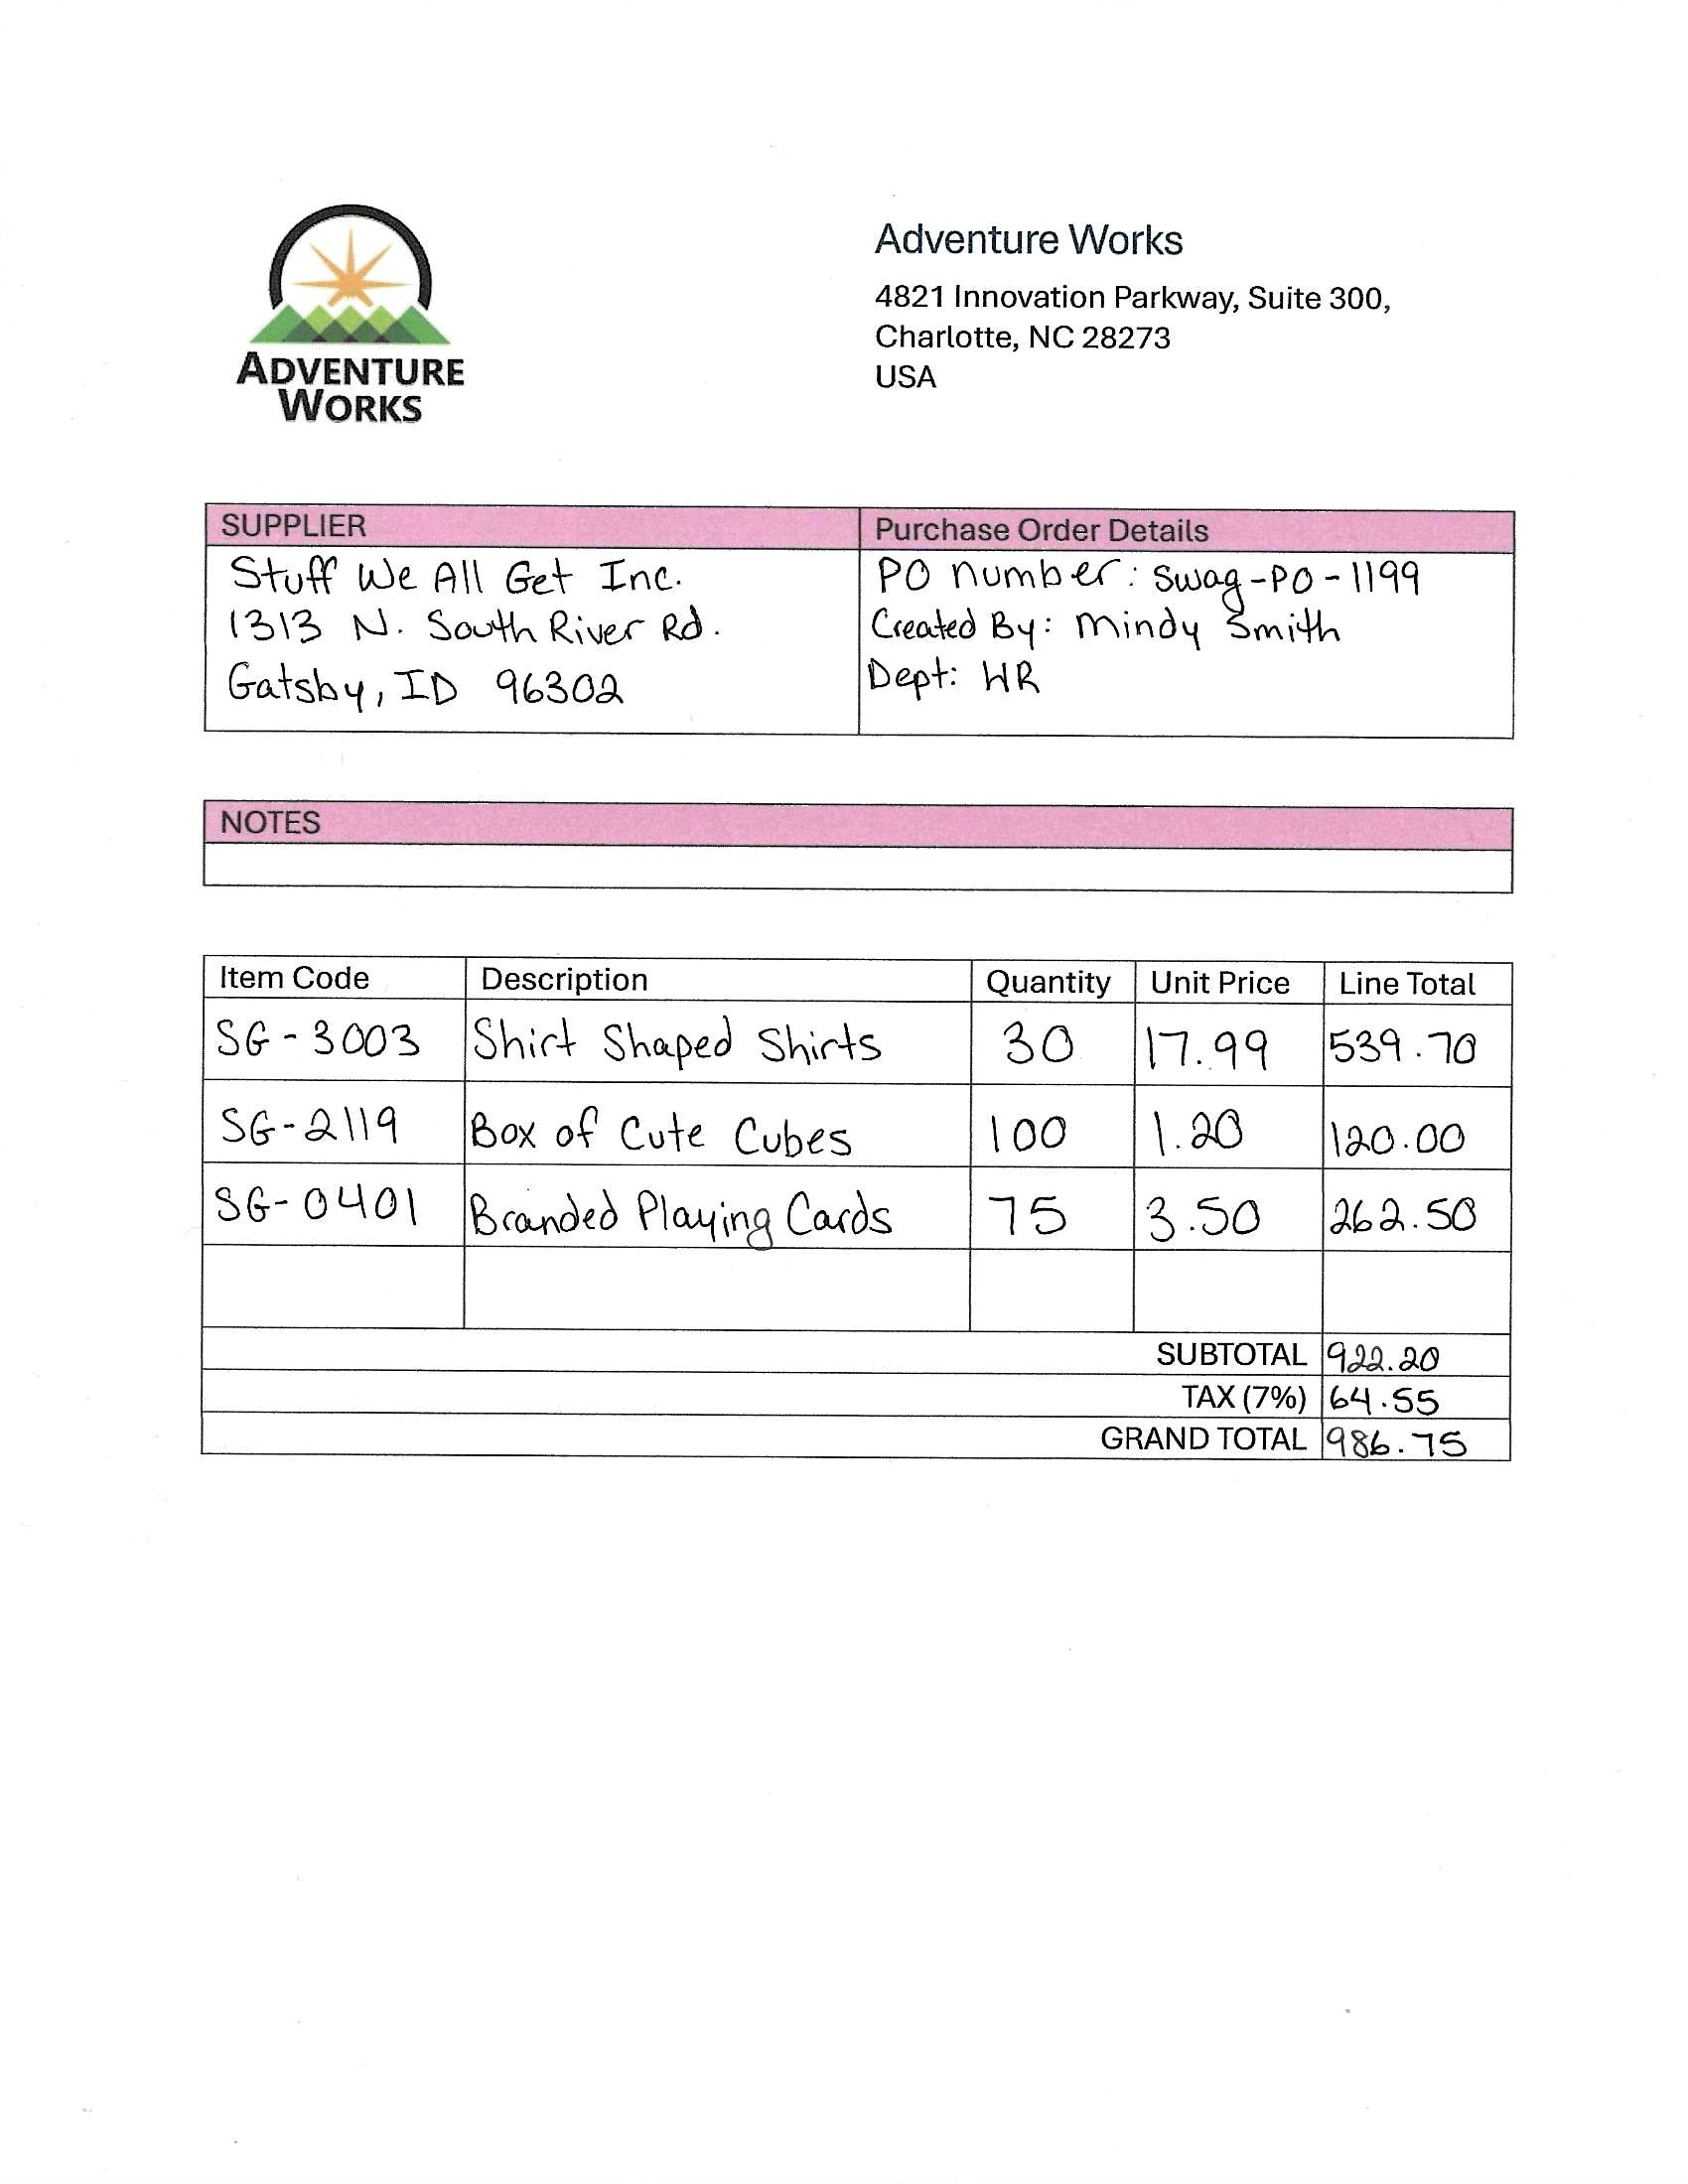 ADVENTURE
WORKS
Adventure Works
4821 Innovation Parkway, Suite 300,
Charlotte, NC 28273
USA
SUPPLIER
Stuff We All Get Inc.
1313 N. South River Rd.
Gatsby, ID 96302
Purchase Order Details
PO number: Swag-PO-1199
Created By: Mindy Smith
Dept: HR
NOTES
Item Code Description Quantity Unit Price Line Total
SG-3003 Shirt Shaped Shirts 30 17.99 539.70
SG-2119 Box of Cute Cubes 100 1.20 120.00
SG-0401 Branded Playing Cards 75 3.50 262.50
SUBTOTAL 922.20
TAX (7%) 64.55
GRAND TOTAL 986.75